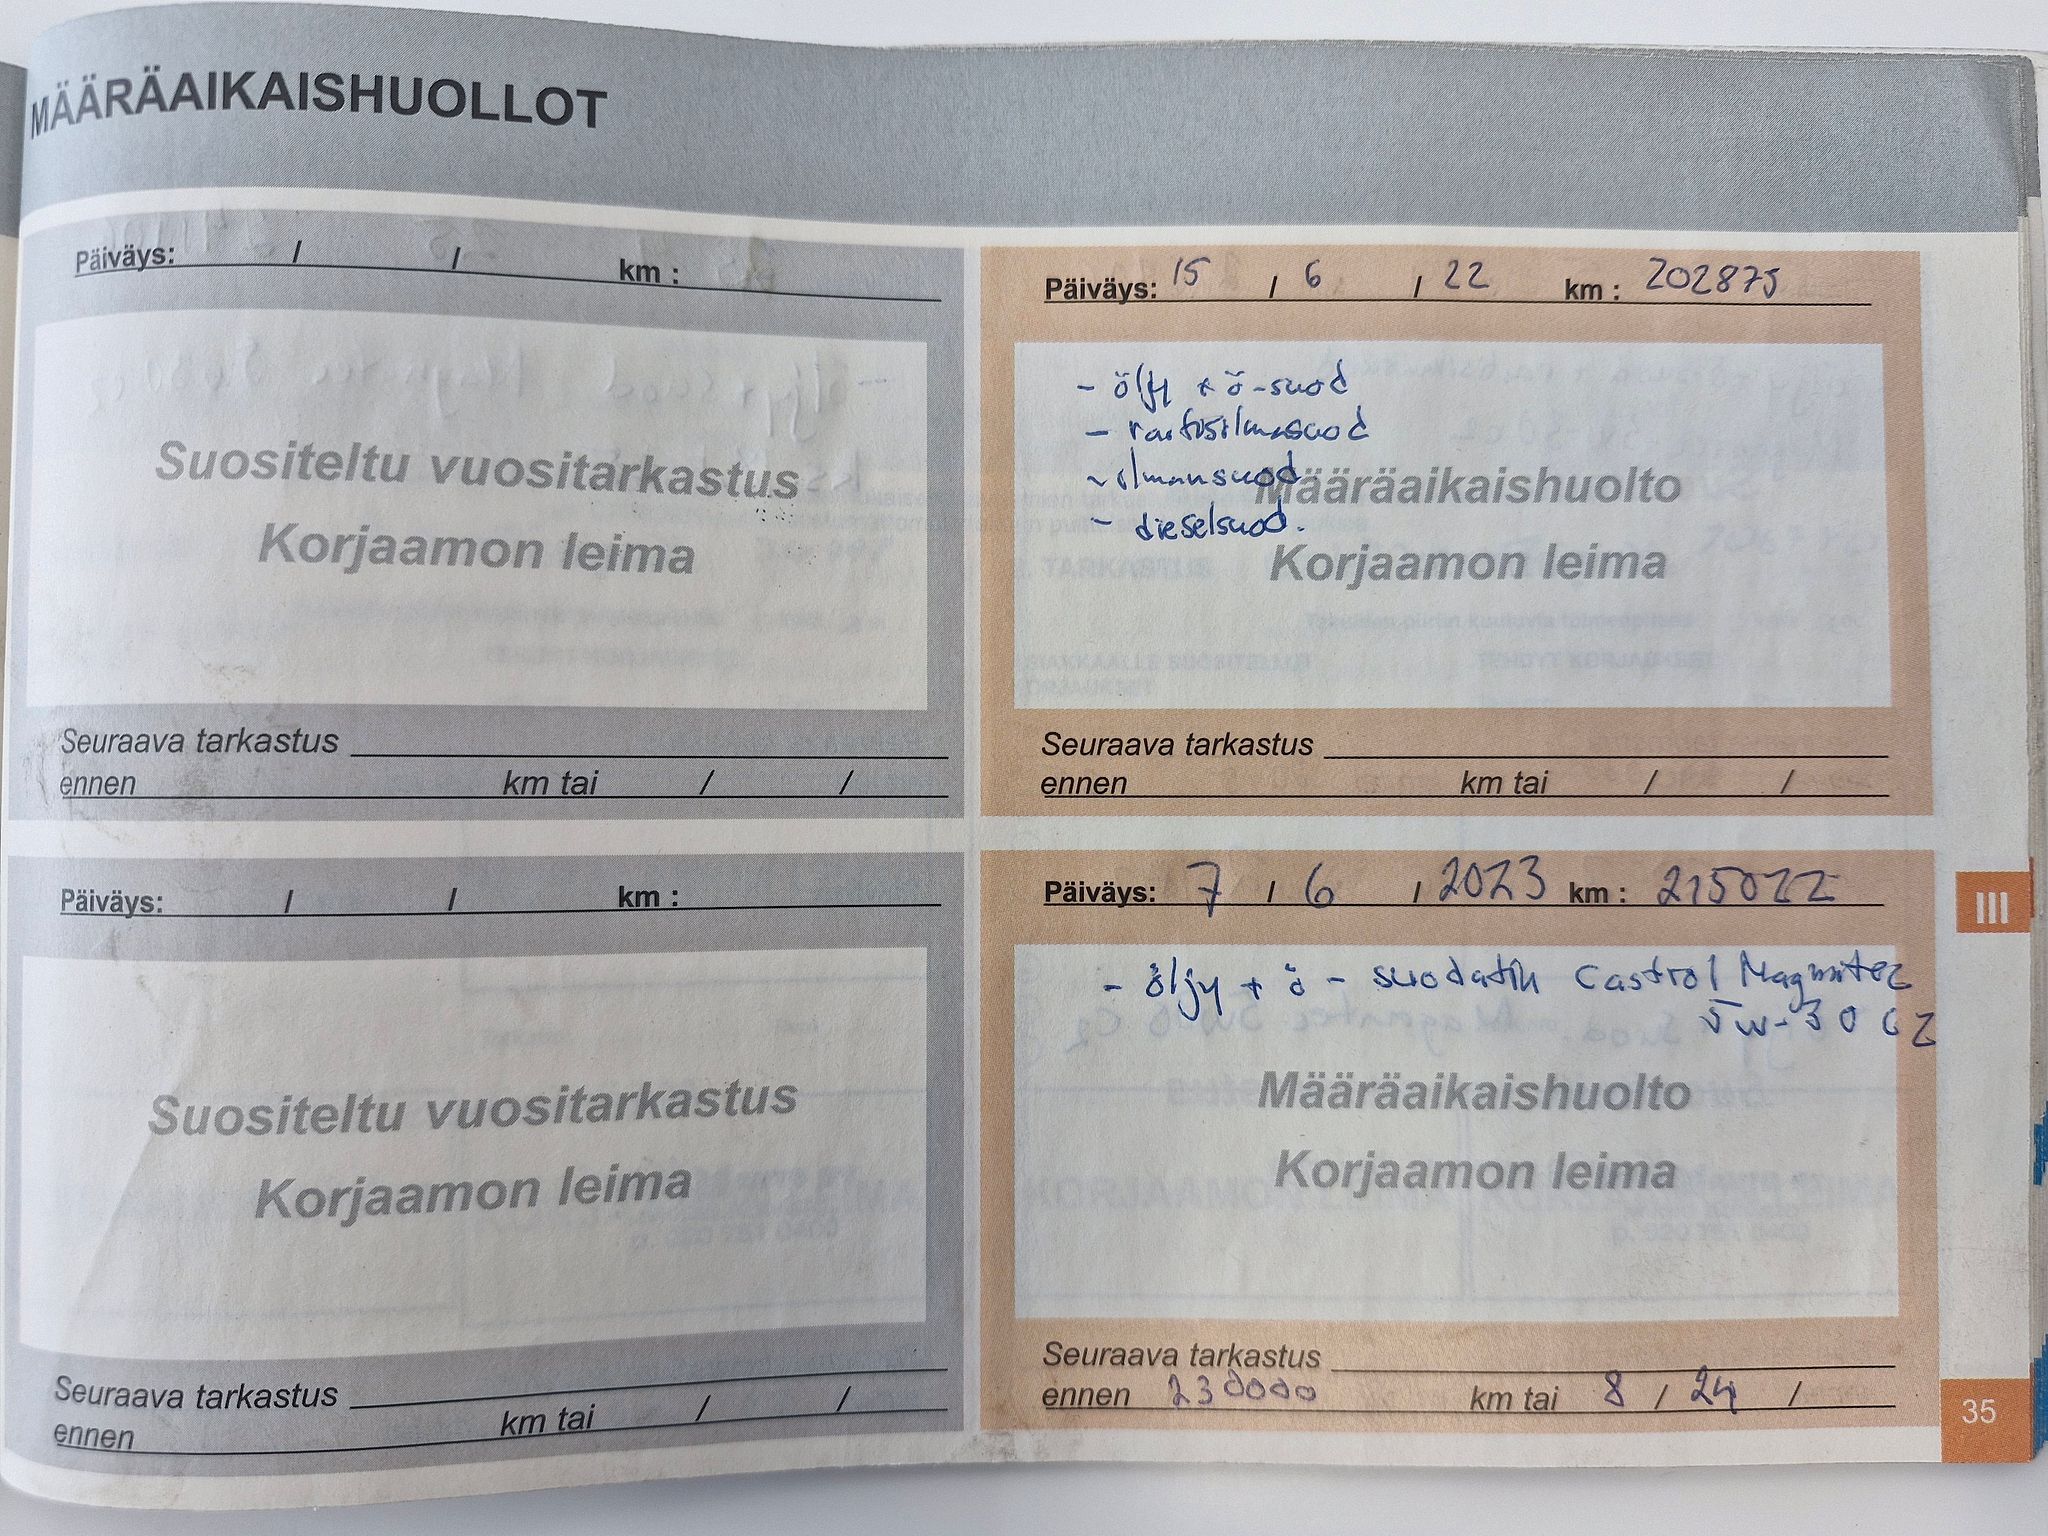 MÄÄRÄAIKAISHUOLLOT
Päiväys: / / km :
Suositeltu vuositarkastus
Korjaamon leima
Seuraava tarkastus
ennen km tai / /
Päiväys: 15 / 6 / 22 km : 202875
- öljy + ö-suod
- raitisilmasuod
- ilmansuod
- dieselsuod.
Määräaikaishuolto
Korjaamon leima
Seuraava tarkastus
ennen km tai / /
Päiväys: / / km :
Suositeltu vuositarkastus
Korjaamon leima
Seuraava tarkastus
ennen km tai / /
Päiväys: 7 / 6 / 2023 km : 215022
- öljy + ö - suodatin Castrol Magnatec
5w-30 C2
Määräaikaishuolto
Korjaamon leima
Seuraava tarkastus
ennen 230000 km tai 8 / 24 /
III
35